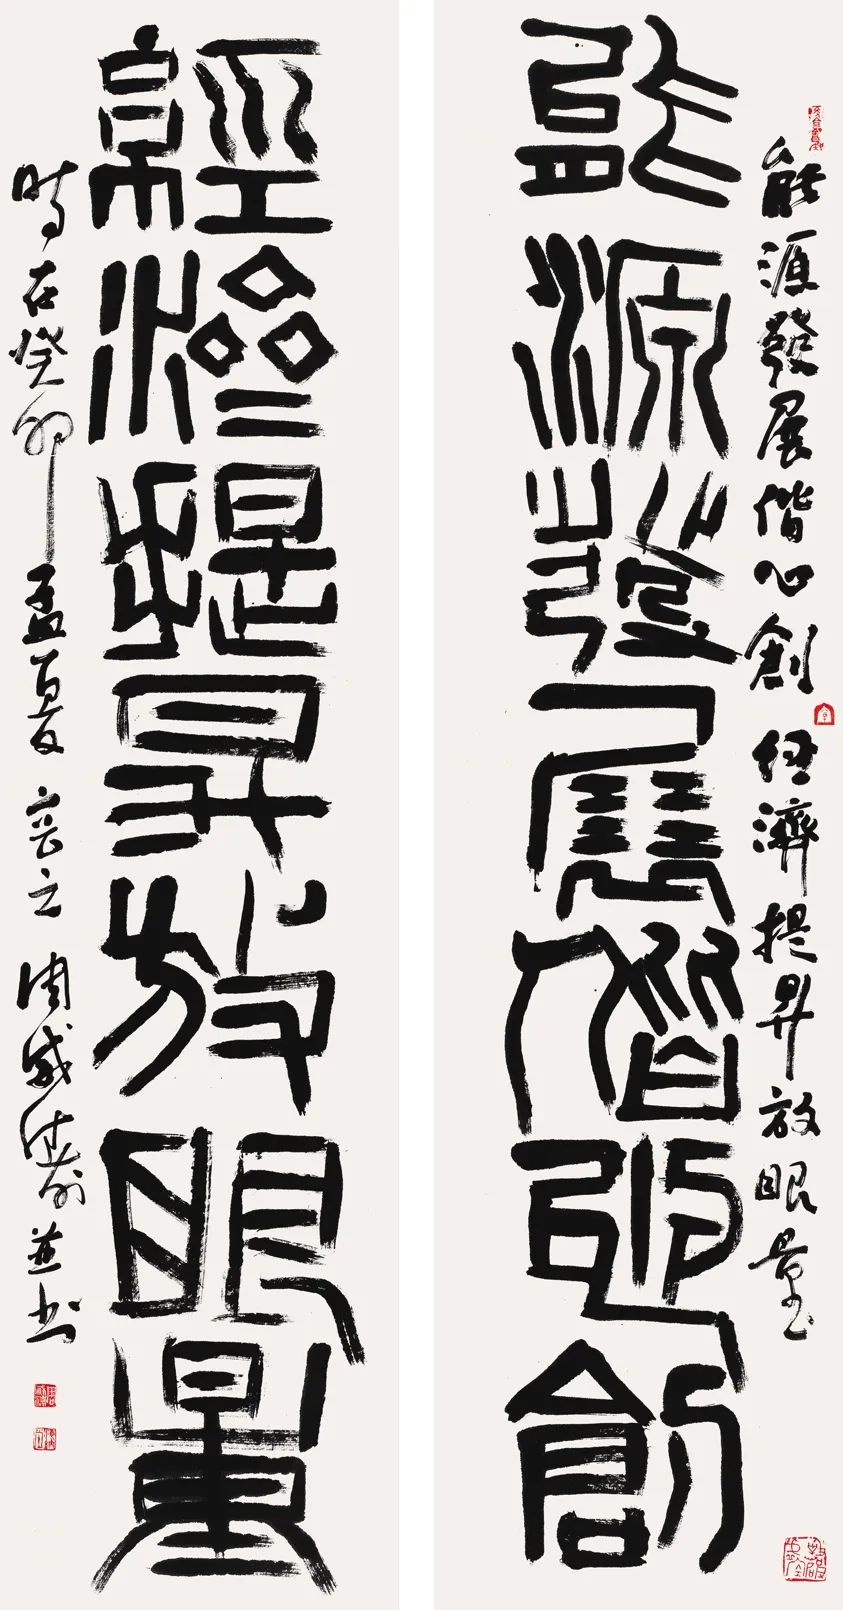 能源發展偕心創 經濟提昇放眼量
能源發展偕創
經濟提昇放眼量
時在癸卯孟夏 周威濤並書